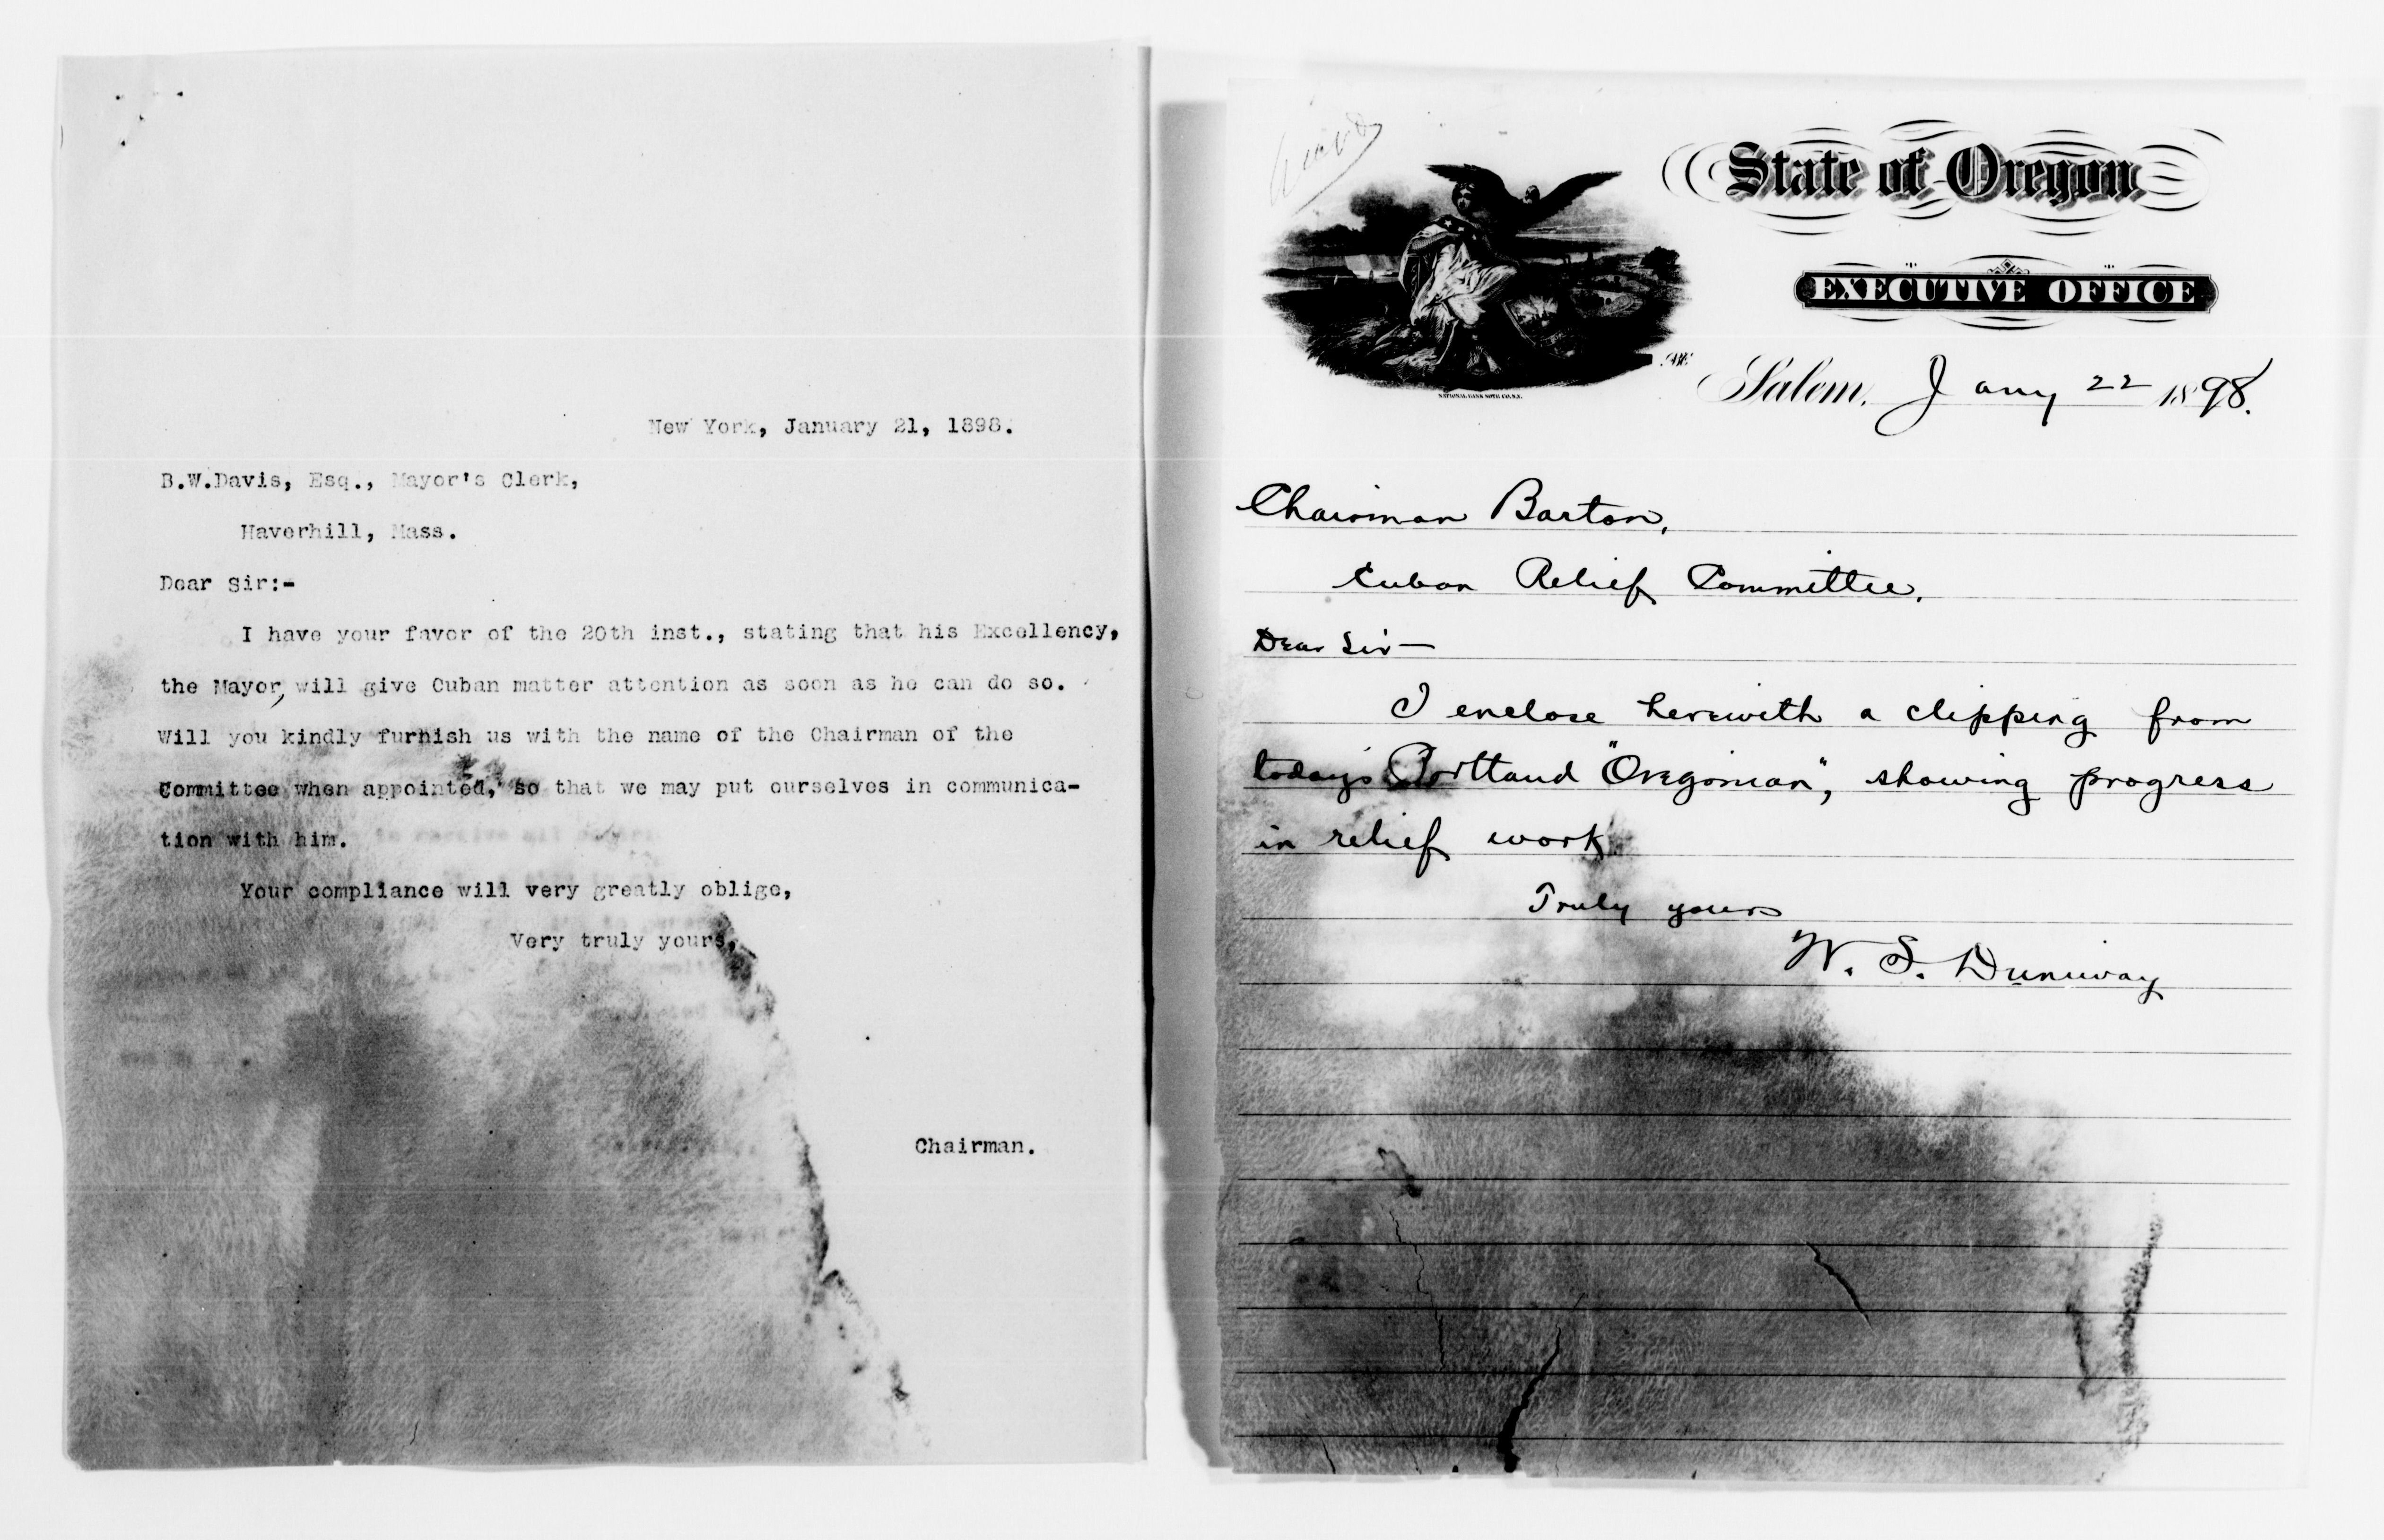 New York, January 21, 1898.
B.W.Davis, Esq., Mayor's Clerk,
Haverhill, Mass.
Dear Sir:-
I have your favor of the 20th inst., stating that his Excellency,
the Mayor, will give Cuban matter attention as soon as he can do so.
Will you kindly furnish us with the name of the Chairman of the
Committee when appointed, so that we may put ourselves in communica-
tion with him.
Your compliance will very greatly oblige,
Very truly yours,
Chairman.
State of Oregon
EXECUTIVE OFFICE
NATIONAL BANK NOTE CO. N.Y.
Salem, Jany 22 1898.
Chairman Barton,
Cuban Relief Committee.
Dear Sir—
I enclose herewith a clipping from
today's Portland "Oregonian", showing progress
in relief work
Truly yours
W. S. Duniway